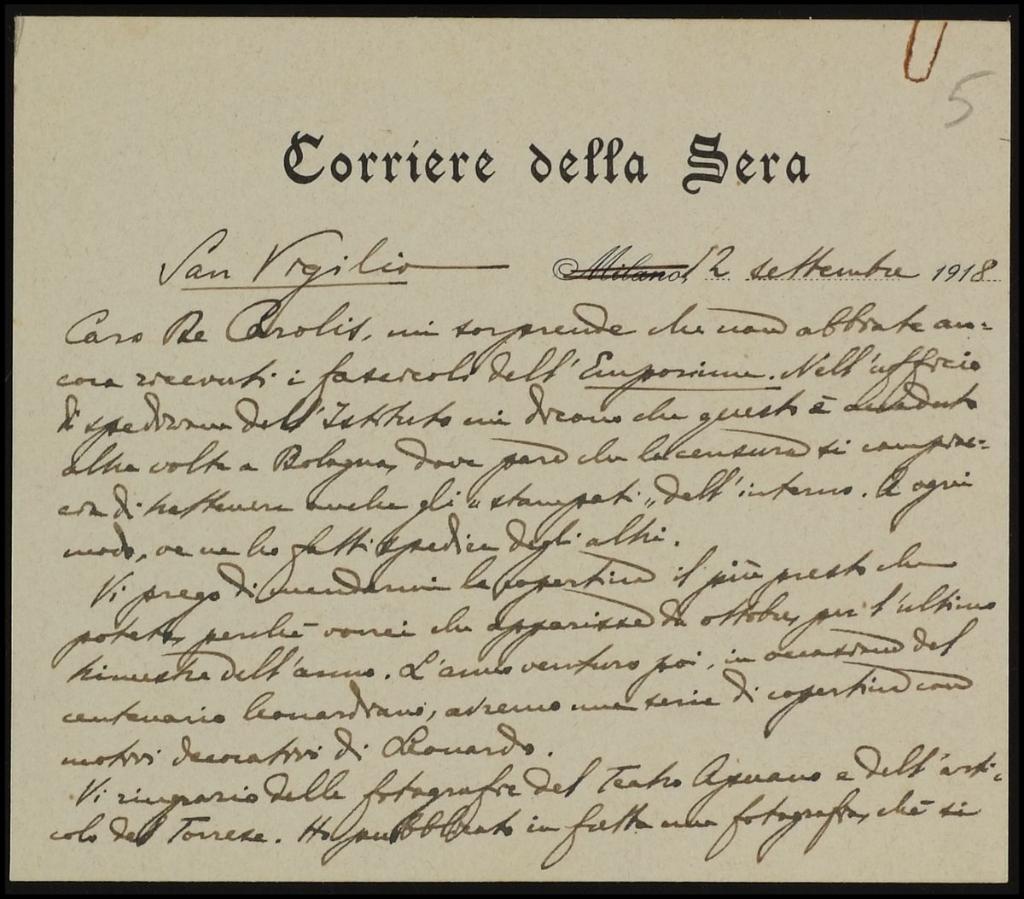 5
Corriere della Sera
San Vigilio Milano, 12 settembre 1918
Caro De Carolis, mi sorprende che non abbiate an=
cora ricevuti i fascicoli dell'Emporium. Nell'ufficio
di spedizione dell'Istituto mi dicono che questo è accaduto
altre volte a Bologna, dove pare che la censura si compiac=
cia di trattenere anche gli "stampati" dell'interno. A ogni
modo, ve ne ho fatti spedire degli altri.
Vi prego di mandarmi la copertina il più presto che
potete, perché vorrei che apparisse da ottobre, per l'ultimo
trimestre dell'anno. L'anno venturo poi, in occasione del
centenario leonardiano, avremo una serie di copertine con
motivi decorativi di Leonardo.
Vi ringrazio delle fotografie del Teatro Apuano e dell'arti=
colo del Torrese. Ho pubblicato in fretta una fotografia, ché si